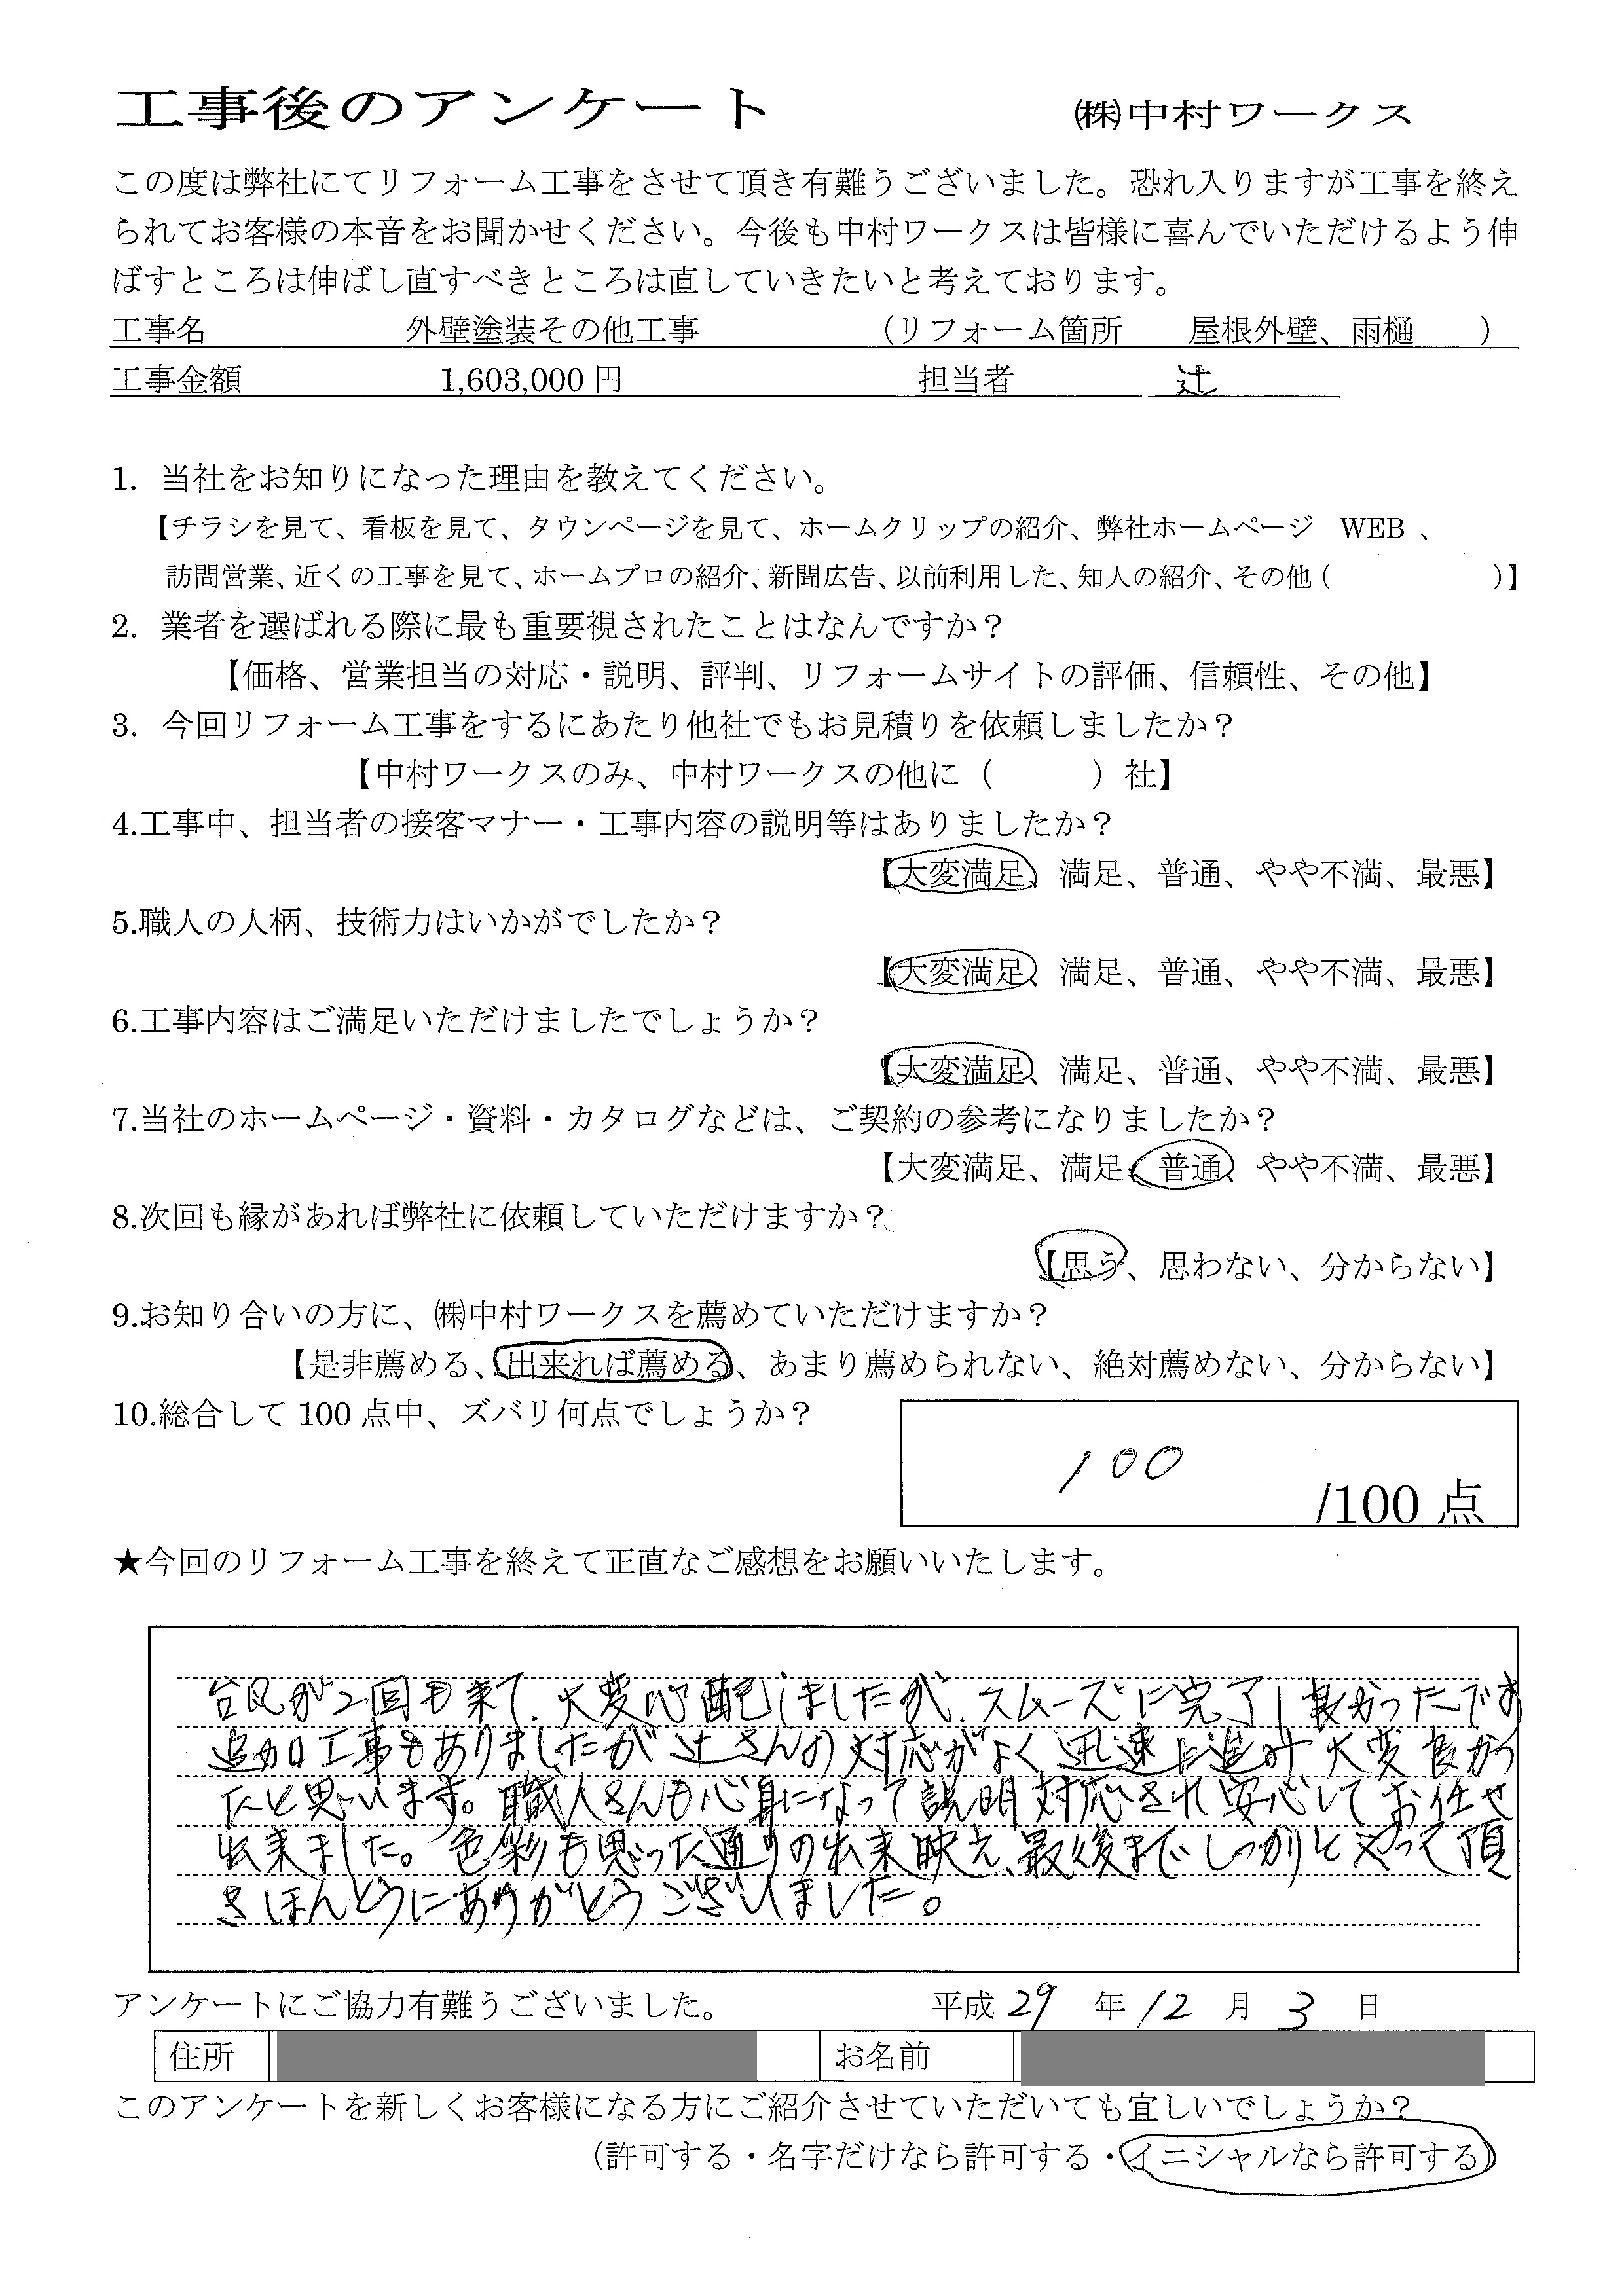 工事後のアンケート ㈱中村ワークス
この度は弊社にてリフォーム工事をさせて頂き有難うございました。恐れ入りますが工事を終え
られてお客様の本音をお聞かせください。今後も中村ワークスは皆様に喜んでいただけるよう伸
ばすところは伸ばし直すべきところは直していきたいと考えております。
工事名 外壁塗装その他工事 (リフォーム箇所 屋根外壁、雨樋 )
工事金額 1,603,000 円 担当者 辻
1. 当社をお知りになった理由を教えてください。
【チラシを見て、看板を見て、タウンページを見て、ホームクリップの紹介、弊社ホームページ WEB 、
訪問営業、近くの工事を見て、ホームプロの紹介、新聞広告、以前利用した、知人の紹介、その他 ( )】
2. 業者を選ばれる際に最も重要視されたことはなんですか？
【価格、営業担当の対応・説明、評判、リフォームサイトの評価、信頼性、その他】
3. 今回リフォーム工事をするにあたり他社でもお見積りを依頼しましたか？
【中村ワークスのみ、中村ワークスの他に（ ）社】
4.工事中、担当者の接客マナー・工事内容の説明等はありましたか？
【大変満足、満足、普通、やや不満、最悪】
5.職人の人柄、技術力はいかがでしたか？
【大変満足、満足、普通、やや不満、最悪】
6.工事内容はご満足いただけましたでしょうか？
【大変満足、満足、普通、やや不満、最悪】
7.当社のホームページ・資料・カタログなどは、ご契約の参考になりましたか？
【大変満足、満足、普通、やや不満、最悪】
8.次回も縁があれば弊社に依頼していただけますか？
【思う、思わない、分からない】
9.お知り合いの方に、㈱中村ワークスを薦めていただけますか？
【是非薦める、出来れば薦める、あまり薦められない、絶対薦めない、分からない】
10.総合して 100 点中、ズバリ何点でしょうか？
100
/100 点
★今回のリフォーム工事を終えて正直なご感想をお願いいたします。
台風が2回も来て、大変心配しましたが、スムーズに完了し良かったです
追加工事もありましたが辻さんの対応がよく迅速に進み大変良かっ
たと思います。職人さんも心身になって説明対応され安心してお任せ
出来ました。色彩も思った通りの出来映え、最後までしっかりとやって頂
きほんとうにありがとうございました。
アンケートにご協力有難うございました。 平成 29 年 12 月 3 日
住所 お名前
このアンケートを新しくお客様になる方にご紹介させていただいても宜しいでしょうか？
(許可する・名字だけなら許可する・イニシャルなら許可する)